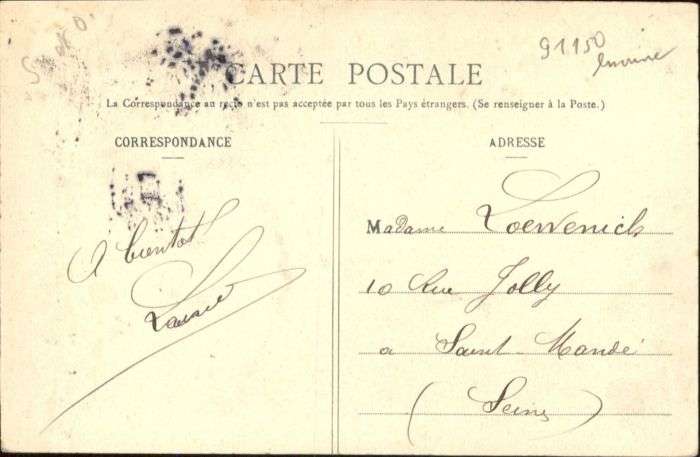 S et O
91150
CARTE POSTALE
La Correspondance au recto n'est pas acceptée par tous les Pays étrangers. (Se renseigner à la Poste.)
CORRESPONDANCE
A bientot
Laure
ADRESSE
Madame Loewenick
10 Rue Jolly
a Saint-Mandé
(Seine)